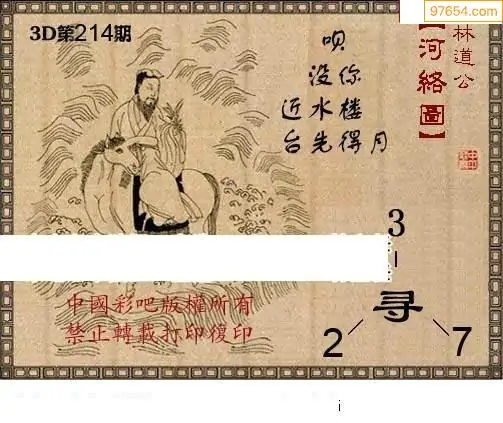 97654.com
3D第214期
林道公
【河絡圖】
呗
没你
近水楼
台先得月
3
寻
2 7
中國彩吧版權所有
禁止轉載打印復印
i